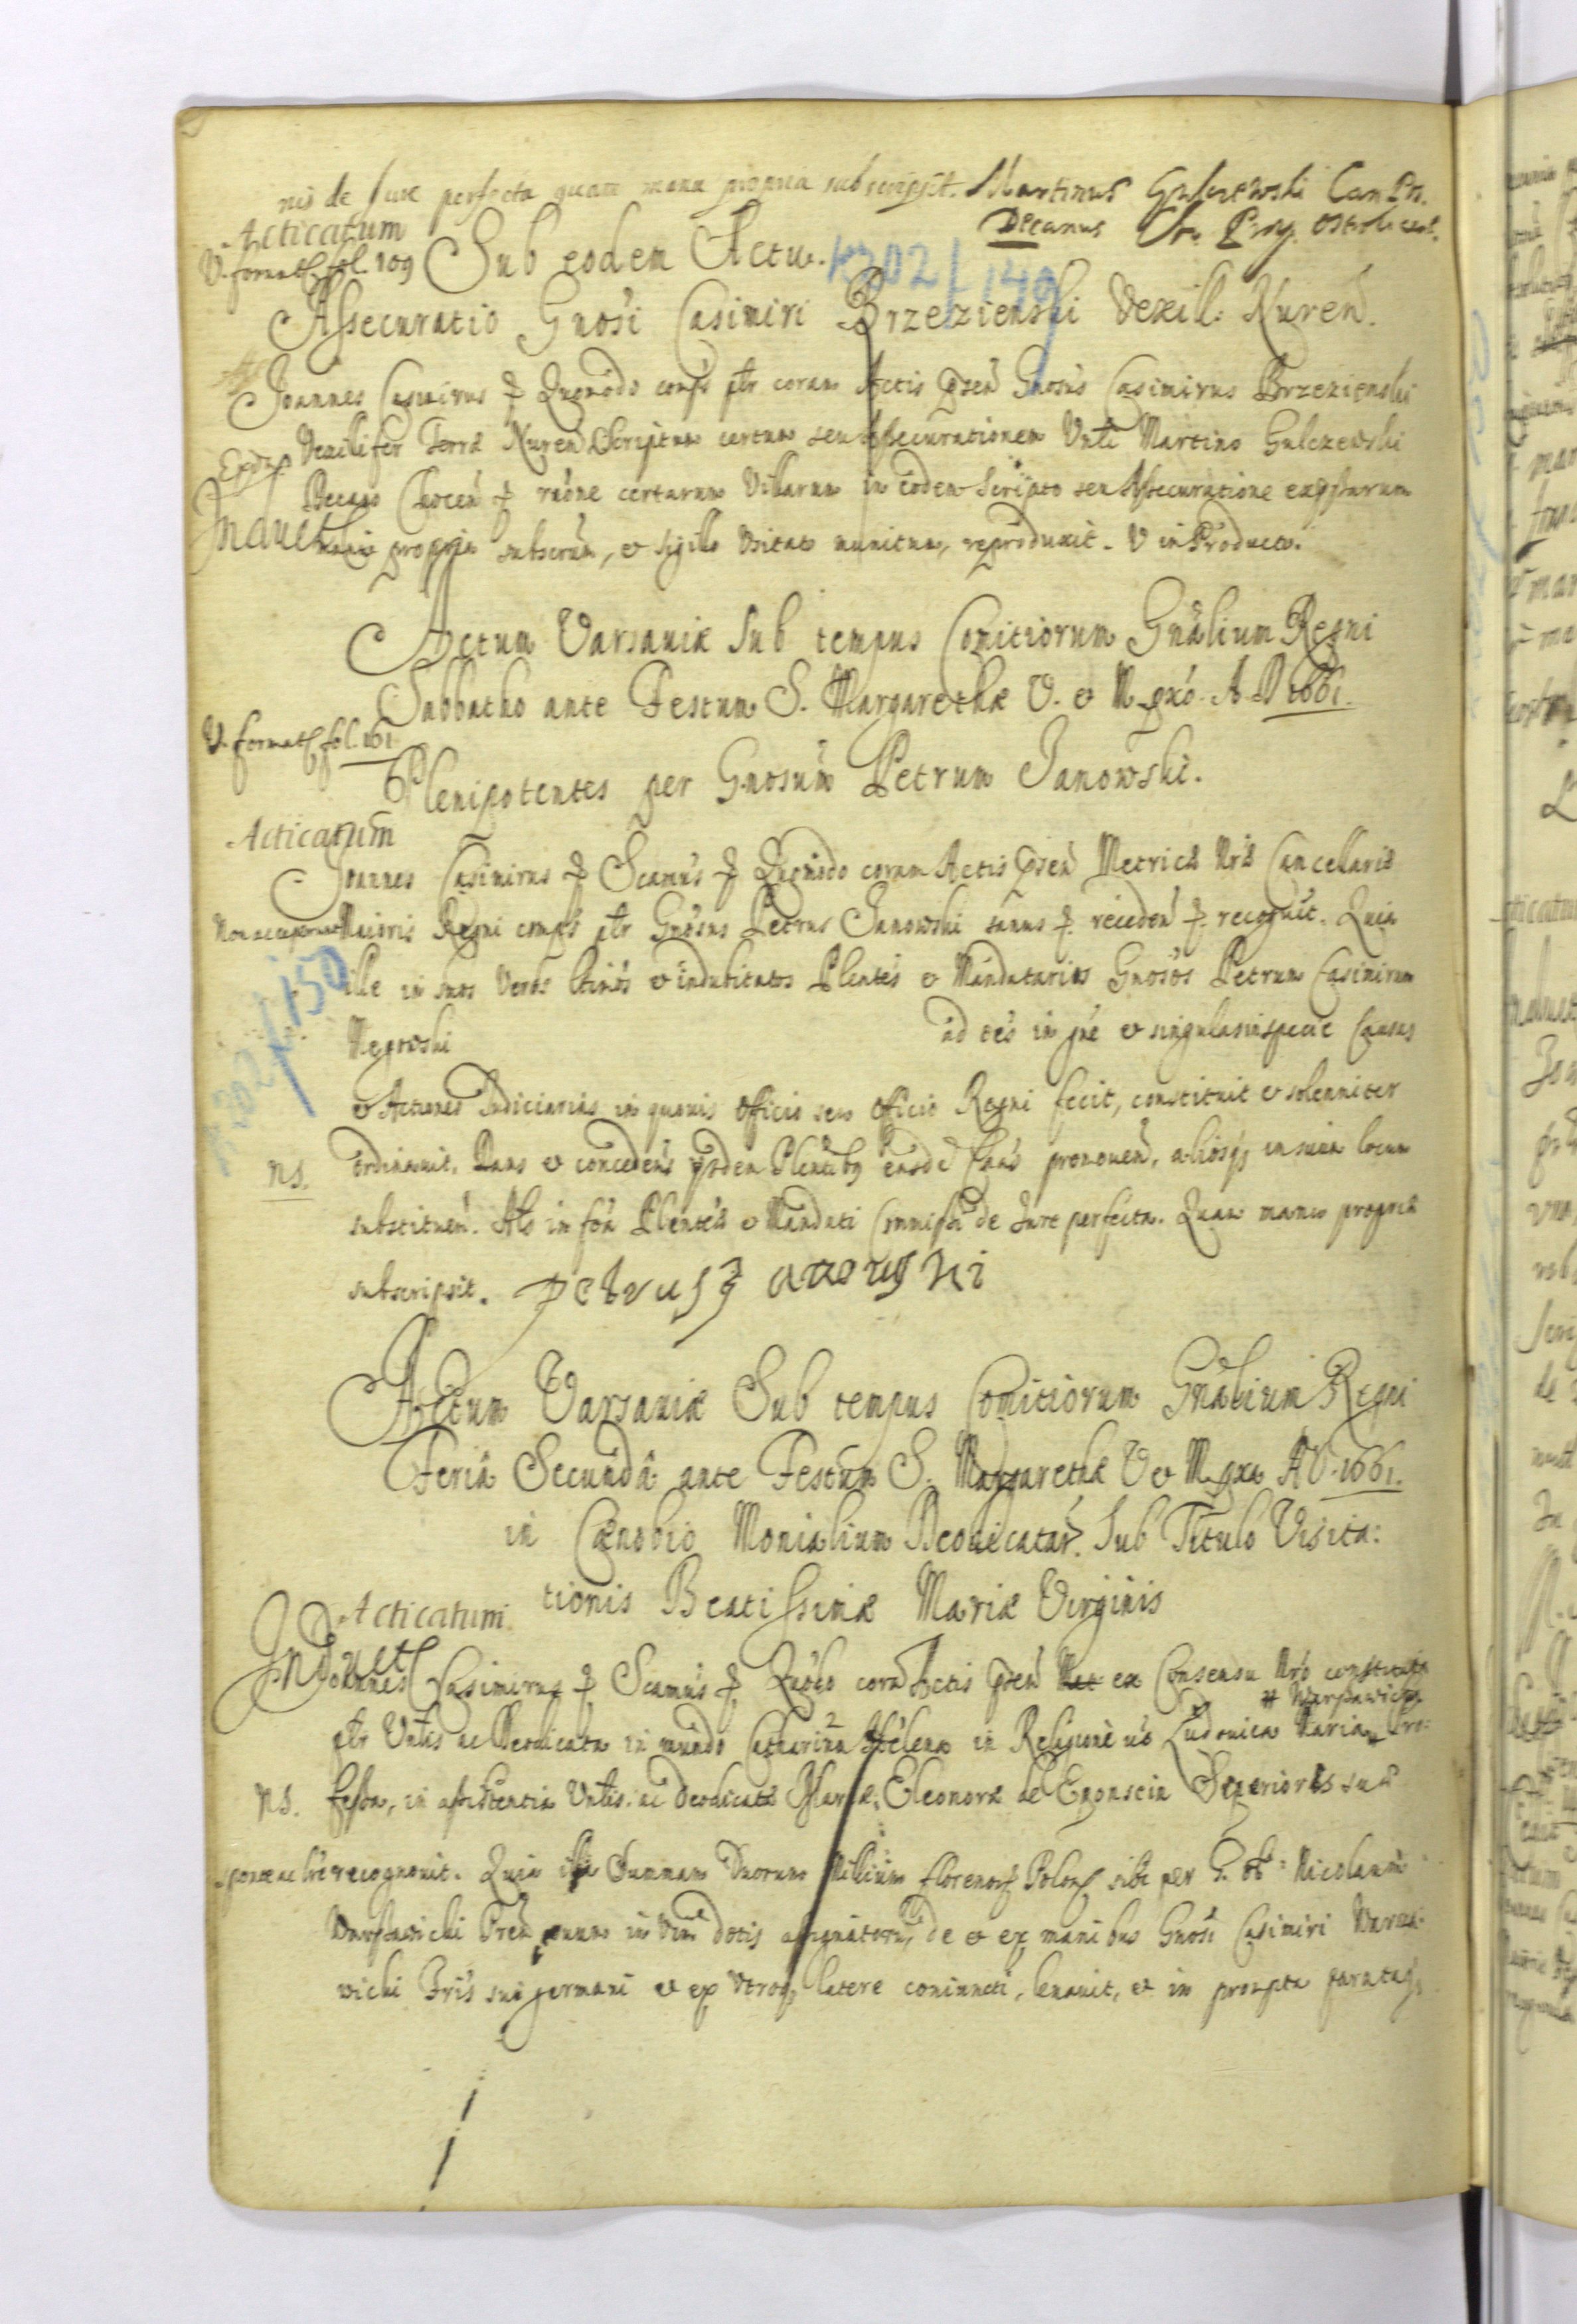 nis de Jure perfecta quam manu propria subscripsit. Martinus Gulczewski Can. Pł.
Decanus
Acticatum
V. format fol. 109
Sub eodem Actu.
K302/149
Assecuratio Gnosi Casimiri Brzezienski Vexil: Nuren.
Joannes Casimirus & Quomodo comps pltr coram Actis psen Gnosus Casimirus Brzezienski
Vexilifer Terræ Nuren Scriptum certum seu Assecurationem Vnli Martino Gulczewski
Decano & raóne certarum Villarum in eodem Scripto seu Assecuratione expssarum
manu propria subscrúm, et sigillo usitato munitum, reproduxit. V in Producto.
Induct
Actum Varsauiæ Sub tempus Comitiorum Gnálium Regni
Sabbatho ante Festum S. Margarethæ V. et M. pxó. A. D 1661.
V. format fol. 161
Plenipotentes per Gnosum Petrum Janowski.
Acticatum
Joannes Casimirus & Scamus & Quomodo coram Actis psen Metrices Nræ Cancellariæ
Maioris Regni comps pltr Gnosus Petrus Janowski sanus & receden & recognit. Quia
K302/150
ille in suos veros ltimos et indubitatos Plentes et Mandatarios Gnosos Petrum Casimirum
Negowski ad oés in gne et singulas in specie Causas
et Actiones Judiciarias in quouis Officio seu Officio Regni fecit, constituit et solenniter
NS.
ordinauit. Dans et conceden's ysdem Plentibq easde Caus promouen, aliosq in suum locum
substituen. Als in foa Plentes et Mandati Commissi de Jure perfecta. Quam manu propria
subscripsit. Petrus Janowski
Actum Varsauiæ Sub tempus Comitiorum Gnálium Regni
Feriâ Secundâ ante Festum S. Margarethæ V et M. pxa A D. 1661.
in Cænobio Monialium Deodicatar. Sub Titulo Visita:
tionis Beatissimæ Mariæ Virginis
Acticatum
Induct
Joannes Casimirus & Scamus & Quódo cora Actis psen ex Consensu Nro constituta
# Warszawicka
pltr Vnlis ac Deodicata in mundo Catharina Helena in Religione uó Ludouica Maria # Pro:
NS.
fessa, in assistentia Vnlis ac Deodicatæ Mariæ Eleonoræ de Superioris suæ
sponte ac lbre recognouit. Quia ipsa Summam Duorum Millium florenorq Polonq sibi per G. ol: Nicolaum
Warszawicki in Vim dotis assignatorum, de et ex manibus Gnosi Casimiri Warsza-
wicki Fris sui germani et ex utroq latere coniuncti, leuauit, et in prompta parataq